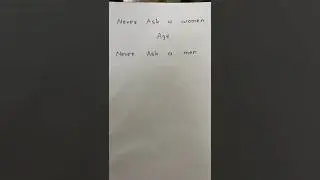 Never Ask a women
Age
Never Ask a men